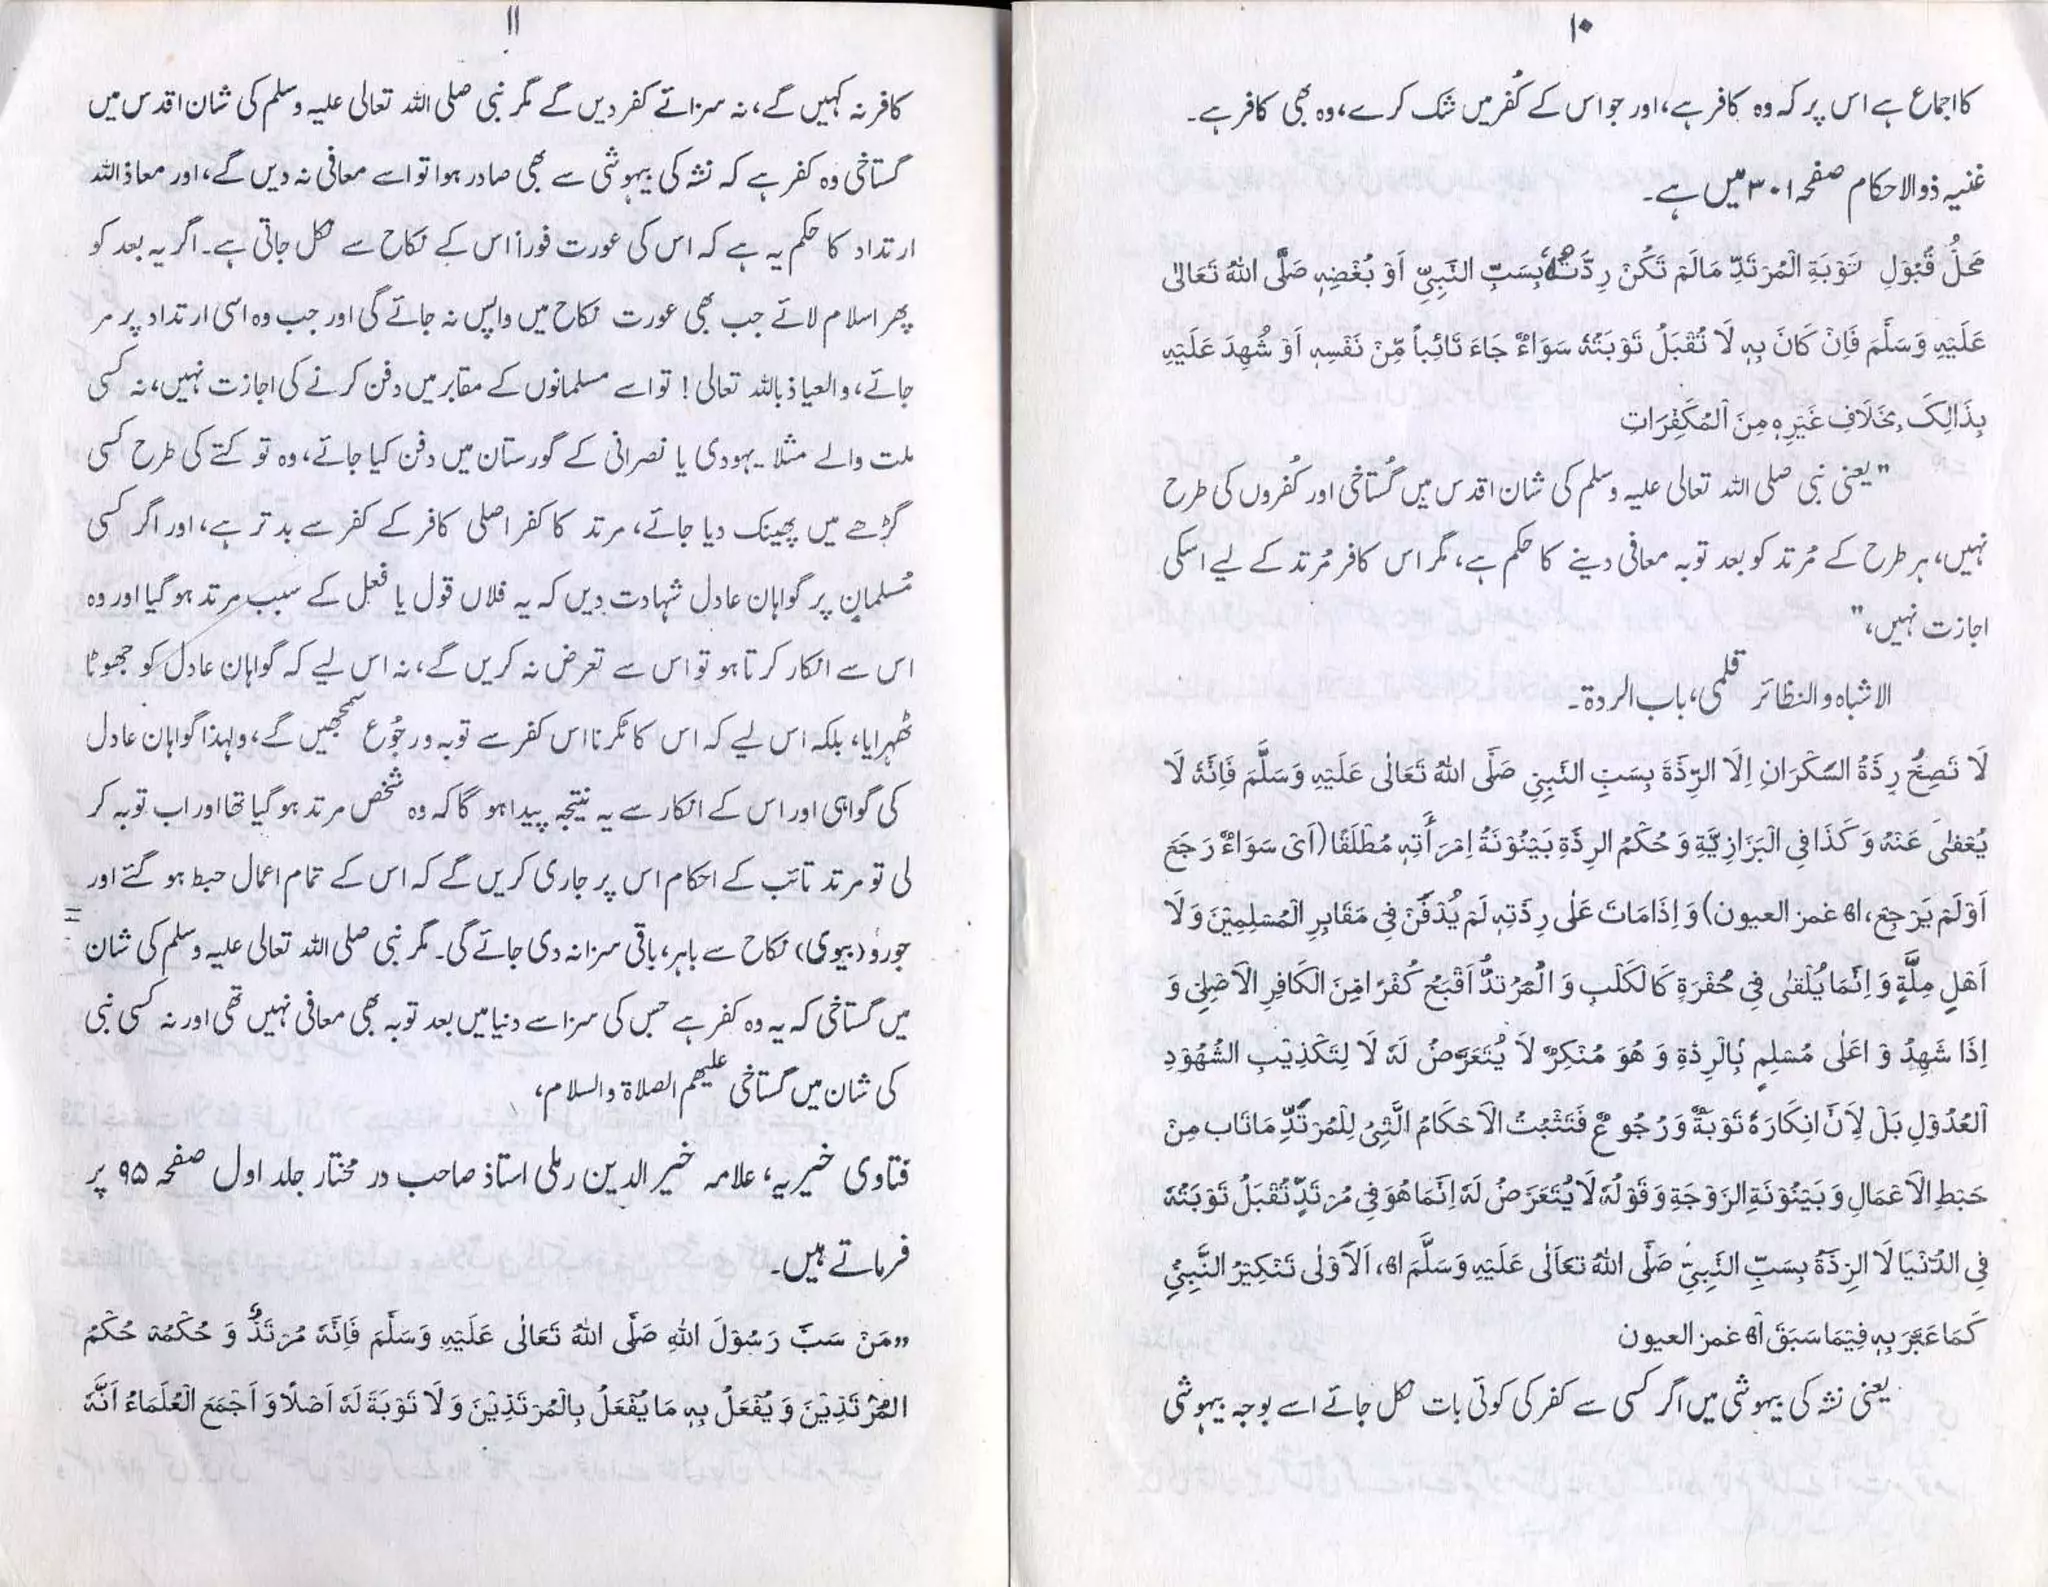 ۱۰
کا اجماع ہے اس پر کہ وہ کافر ہے، اور جو اس کے کُفر میں شک کرے، وہ بھی کافر ہے۔
غنیہ ذوالاحکام صفحہ ۳۰۱ میں ہے۔
مَحَلُّ قُبُوْلِ تَوْبَةِ الْمُرْتَدِّ مَالَمْ تَكُنْ رِدَّتُهٗ بِسَبِّ النَّبِيِّ اَوْ بُغْضِهٖ صَلَّی اللهُ تَعَالیٰ
عَلَيْهِ وَسَلَّمَ فَاِنْ كَانَ بِهٖ لَا تُقْبَلُ تَوْبَتُهٗ سَوَاءٌ جَاءَ تَائِباً مِّنْ نَفْسِهٖ اَوْ شُهِدَ عَلَيْهِ
بِذَالِكَ بِخَلَافِ غَيْرِهٖ مِنَ الْمُكَفِّرَاتِ
"یعنی نبی صلی اللہ تعالی علیہ وسلم کی شان اقدس میں گُستاخی اور کُفروں کی طرح
نہیں، ہر طرح کے مُرتد کو بعد توبہ معافی دینے کا حکم ہے، مگر اس کافر مُرتد کے لیے اسکی
اجازت نہیں،"
الاشباہ والنظائر قلمی، باب الردۃ۔
لَا تَصِحُّ رِدَّةُ السَّكْرَانِ اِلَّا الرِّدَّةَ بِسَبِّ النَّبِيِّ صَلَّی اللهُ تَعَالٰی عَلَيْهِ وَسَلَّمَ فَاِنَّهٗ لَا
يُعْفٰی عَنْهُ وَكَذَا فِی الْبَزَازِيَّةِ وَحُكْمُ الرِدَّةِ بَيْنُوْنَةُ اِمْرَأَتِهٖ مُطْلَقًا (اَیْ سَوَاءٌ رَجَعَ
اَوْ لَمْ يَرْجِعْ، اھ غمز العيون) وَاِذَا مَاتَ عَلٰی رِدَّتِهٖ لَمْ يُدْفَنْ فِی مَقَابِرِ الْمُسْلِمِيْنَ وَلَا
اَهْلِ مِلَّةٍ وَاِنَّمَا يُلْقٰی فِی حُفْرَةٍ كَالْكَلْبِ وَالْمُرْتَدُّ اَقْبَحُ كُفْرًا مِّنَ الْكَافِرِ الْاَصْلِیِّ وَ
اِذَا شَهِدُ وْ اعَلٰی مُسْلِمٍ بِالرِدَّةِ وَهُوَ مُنْكِرٌ لَا يُتَعَرَّضُ لَهٗ لَا لِتَكْذِيْبِ الشُّهُوْدِ
الْعُدُوْلِ بَلْ لِاَنَّ انِكَارَهٗ تَوْبَةٌ وَرُجُوعٌ فَتَثْبُتُ الْاَحْكَامُ الَّتِیْ لِلْمُرْتَدِّ مَا تَاب مِنْ
حَبْطِ الْاَعْمَالِ وَبَيْنُوْنَةِ الزَّوْجَةِ وَقَوْلُهٗ لَا يُتَعَرَّضُ لَهٗ اِنَّمَا هُوَ فِی مُرْتَدٍّ تُقْبَلُ تَوْبَتُهٗ
فِی الدُّنْيَا لَا الرِدَّةُ بِسَبِّ النَّبِيِّ صَلَّی اللهُ تَعَالٰی عَلَيْهِ وَسَلَّمَ اھ، اَلْاَوْلٰی تَنْكِيْرُ النَّبِیِّ
كَمَا عَبَّرَ بِهٖ فِيْمَا سَبَقَ اھ غمز العيون
یعنی نشہ کی بیہوشی میں اگر کسی سے کفر کی کوئی بات نکل جائے اسے بوجہ بیہوشی
۱۱
کافر نہ کہیں گے، نہ سزائے کفر دیں گے مگر نبی صلی اللہ تعالی علیہ وسلم کی شان اقدس میں
گستاخی وہ کفر ہے کہ نشہ کی بیہوشی سے بھی صادر ہوا تو اسے معافی نہ دیں گے، اور معاذ اللہ
ارتداد کا حکم یہ ہے کہ اس کی عورت فوراً اس کے نکاح سے نکل جاتی ہے۔ اگر یہ بعد کو
پھر اسلام لائے جب بھی عورت نکاح میں واپس نہ جائے گی اور جب وہ اسی ارتداد پر مر
جائے، والعیاذ باللہ تعالی! تو اسے مسلمانوں کے مقابر میں دفن کرنے کی اجازت نہیں، نہ کسی
ملت والے مثلاً یہودی یا نصرانی کے گورستان میں دفن کیا جائے، وہ تو کتے کی طرح کسی
گڑھے میں پھینک دیا جائے، مرتد کا کفر اصلی کافر کے کفر سے بدتر ہے، اور اگر کسی
مُسلمان پر گواہان عادل شہادت دیں کہ یہ فلاں قول یا فعل کے سبب مرتد ہو گیا اور وہ
اس سے انکار کرتا ہو تو اس سے تعرض نہ کریں گے، نہ اس لیے کہ گواہان عادل کو جھوٹا
ٹھہرایا، بلکہ اس لیے کہ اس کا مکرنا اس کفر سے توبہ و رجُوع سمجھیں گے، ولہذا گواہان عادل
کی گواہی اور اس کے انکار سے یہ نتیجہ پیدا ہو گا کہ وہ شخص مرتد ہو گیا تھا اور اب توبہ کر
لی تو مرتد تائب کے احکام اس پر جاری کریں گے کہ اس کے تمام اعمال حبط ہو گئے اور
جورو (بیوی) نکاح سے باہر، باقی سزا نہ دی جائے گی۔ مگر نبی صلی اللہ تعالی علیہ وسلم کی شان
میں گستاخی کہ یہ وہ کفر ہے جس کی سزا سے دنیا میں بعد توبہ بھی معافی نہیں تھی اور نہ کسی نبی
کی شان میں گستاخی علیہم الصلاۃ والسلام،
فتاوی خیریہ، علامہ خیر الدین رملی استاذ صاحب در مختار جلد اول صفحہ ۹۵ پر
فرماتے ہیں۔
"مَنْ سَبَّ رَسُوْلَ اللهِ صَلَّی اللهُ تَعَالٰی عَلَيْهِ وَسَلَّمَ فَاِنَّهٗ مُرْتَدٌّ وَحُكْمُهٗ حُكْمُ
الْمُرْتَدِّيْنَ وَيُفْعَلُ بِهٖ مَا يُفْعَلُ بِالْمُرْتَدِّيْنَ وَلَا تَوْبَةَ لَهٗ اَصْلًا وَاَجْمَعَ الْعُلَمَاءُ اَنَّهٗ